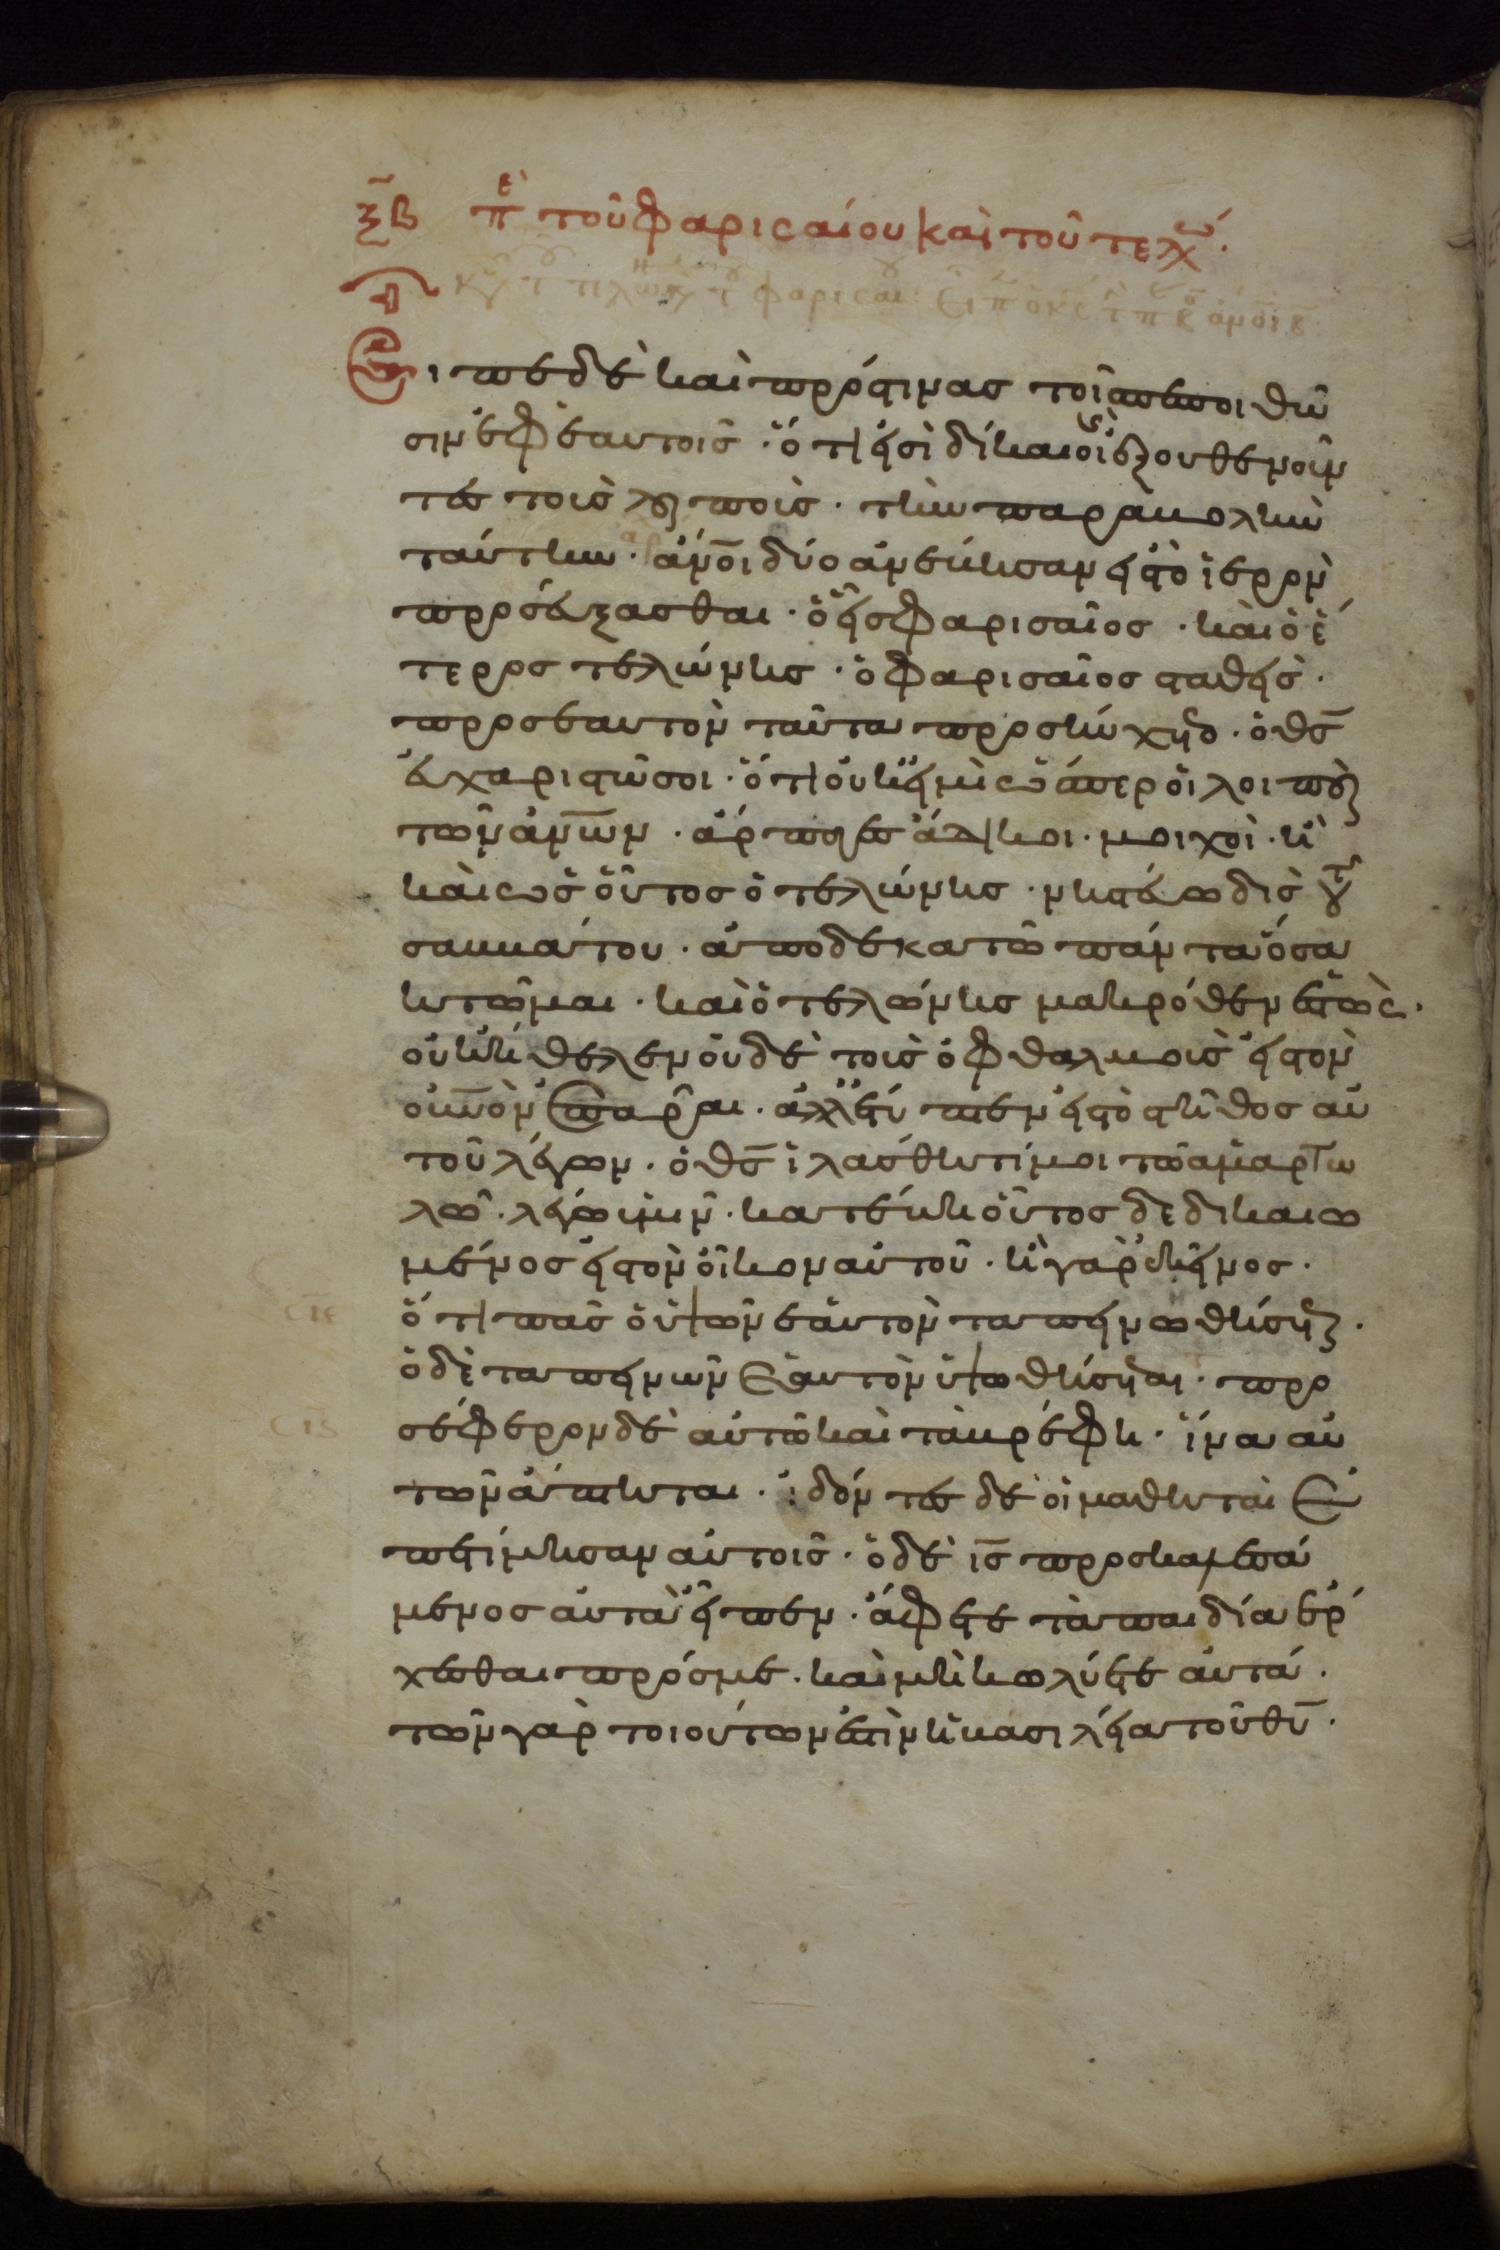 ξβ πε τοῦ φαρισαίου καὶ τοῦ τελω
κυ του τελωνου κ του φαρισαι ειπ ο κς τ π ανοι β
Εἶπε δὲ καὶ πρός τινας τοὺς πεποιθό
τας ἐφ ἑαυτοῖς ὅτι εἰσὶ δίκαιοι ἐξουθενοῦν
τες τοὺς λοιποὺς · τὴν παραβολὴν
ταύτην · ἄνοι δύο ἀνέβησαν εἰς τὸ ἱερὸν
προσεύξασθαι · ὁ εἷς φαρισαῖος · καὶ ὁ ἕ
τερος τελώνης · ὁ φαρισαῖος σταθεὶς ·
πρὸς ἑαυτὸν ταῦτα προσηύχετο · ὁ θς
εὐχαριστῶ σοι · ὅτι οὐκ εἰμὶ ὥσπερ οἱ λοιποὶ
τῶν ἀνων · ἅρπαγες ἄδικοι · μοιχοὶ · ἢ
καὶ ὡς οὗτος ὁ τελώνης · νηστεύω δὶς τοῦ
σαββάτου · ἀποδεκατῶ πάντα ὅσα
κτῶμαι · καὶ ὁ τελώνης μακρόθεν ἑστὼς ·
οὐκ ἤθελεν οὐδὲ τοὺς ὀφθαλμοὺς εἰς τὸν
οὐνὸν ἐπᾶραι · ἀλλ ἔτυπτεν εἰς τὸ στῆθος αὐ
τοῦ λέγων · ὁ θς ἱλάσθητί μοι τῶ ἁμαρτω
λῶ · λέγω ὑμῖν · κατέβη οὗτος δεδικαιω
μένος εἰς τὸν οἶκον αὐτοῦ · ἢ γὰρ ἐκεῖνος ·
σιε ὅτι πᾶς ὁ ὑψῶν ἑαυτὸν ταπεινωθήσεται ·
ὁ δὲ ταπεινῶν ἑαυτὸν ὑψωθήσεται · προ
σις σέφερον δὲ αὐτῶ καὶ τὰ βρέφη · ἵνα αὐ
τῶν ἅπτηται · ἰδόντες δὲ οἱ μαθηταὶ ἐ
πετίμησαν αὐτοῖς · ὁ δὲ ις προσκαλεσά
μενος αὐτὰ εἶπεν · ἄφετε τὰ παιδία ἔρ
χεσθαι πρός με · καὶ μὴ κωλύετε αὐτά ·
τῶν γὰρ τοιούτων ἐστὶν ἡ βασιλεία τοῦ θυ ·